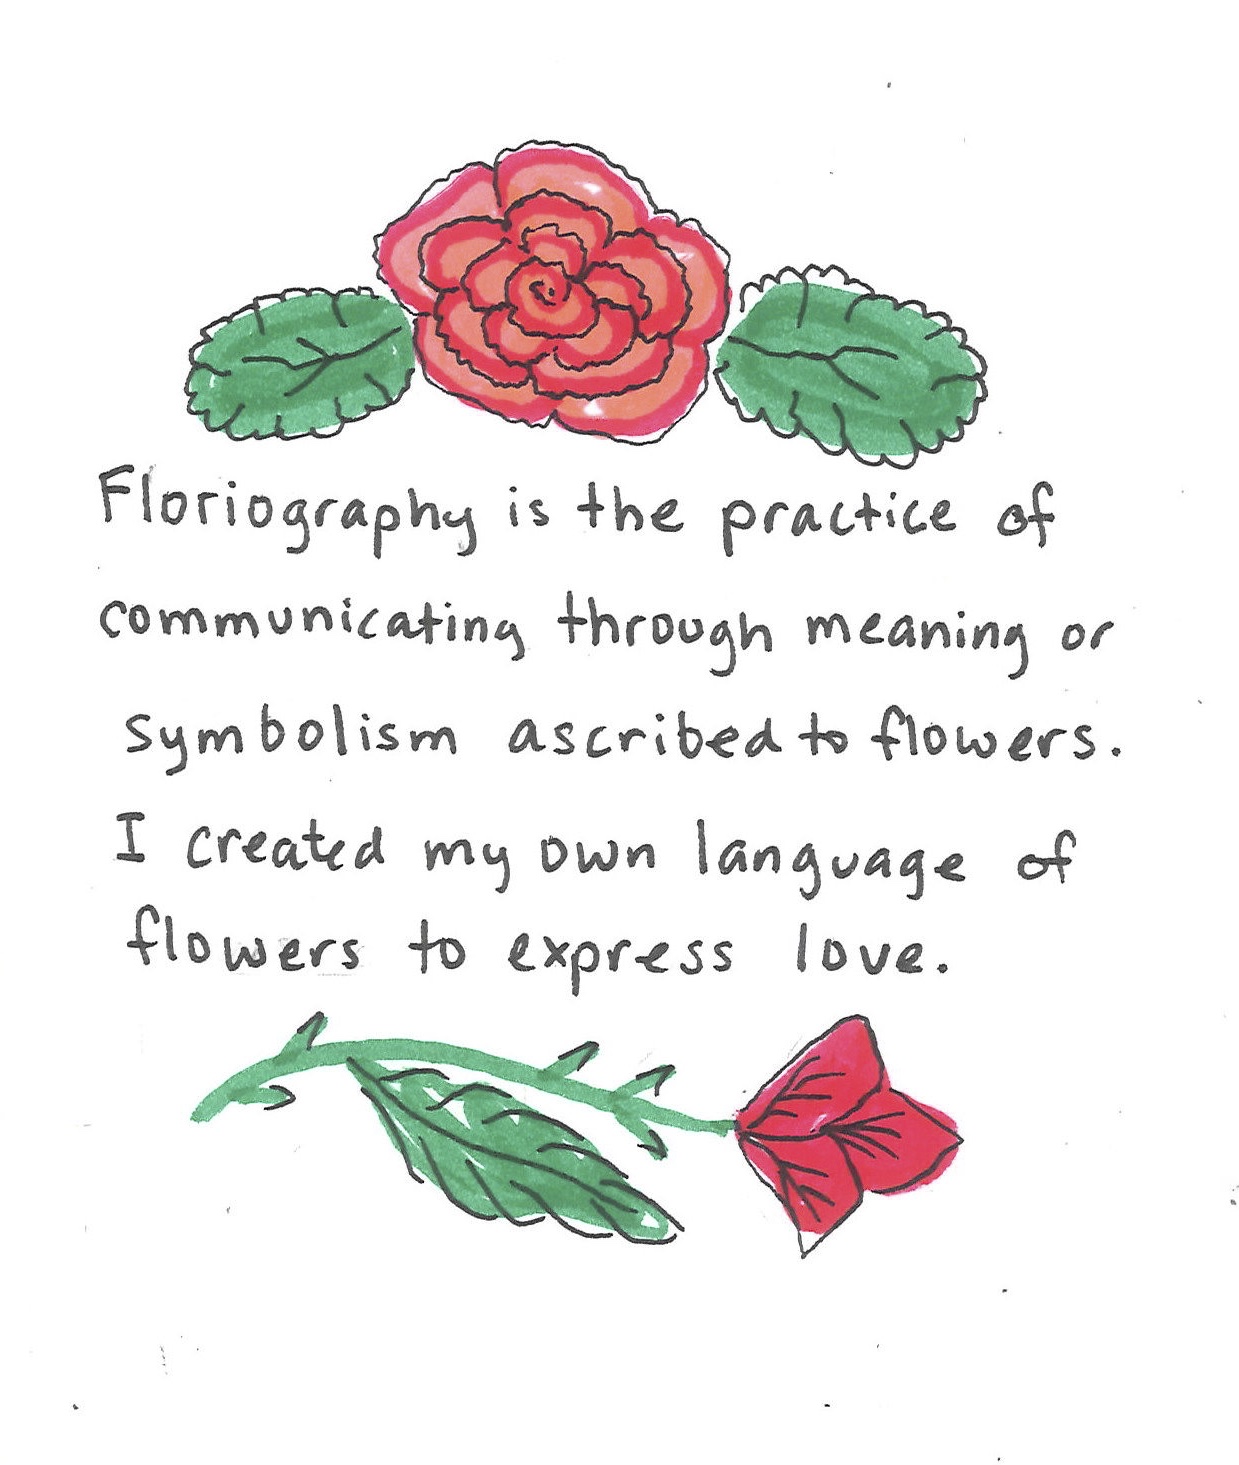 Floriography is the practice of
communicating through meaning or
symbolism ascribed to flowers.
I created my own language of
flowers to express love.